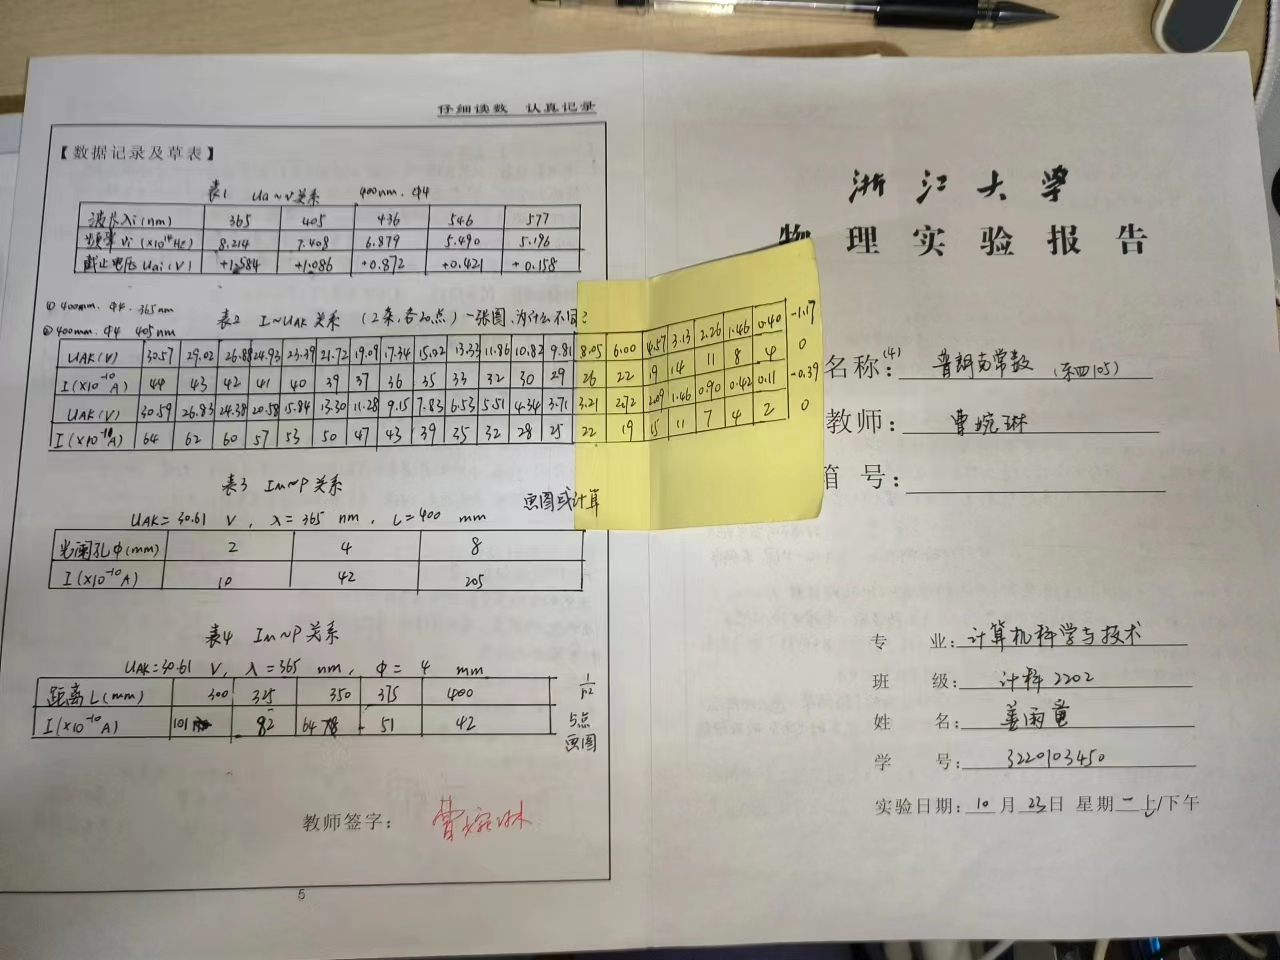 仔细读数 认真记录
【数据记录及草表】
表1 Ua~ν关系 400nm. Φ4
波长λi(nm) 365 405 436 546 577
频率νi(×10¹⁴Hz) 8.214 7.408 6.879 5.490 5.196
截止电压Uai(V) +1.584 +1.086 +0.872 +0.421 +0.158
① 400mm. Φ4. 365nm
② 400mm. Φ4 405nm
表2 I~UAK关系 (2条,各20点) 一张图.为什么不同?
UAK(V) 30.57 29.02 26.88 24.93 23.39 21.72 19.09 17.34 15.02 13.33 11.86 10.82 9.81 8.05 6.00 4.57 3.13 2.26 1.46 0.40 -1.17
I(×10⁻¹⁰A) 44 43 42 41 40 39 37 36 35 33 32 30 29 26 22 19 14 11 8 4 0
UAK(V) 30.59 26.83 24.38 20.58 15.84 13.30 11.28 9.15 7.83 6.53 5.51 4.34 3.71 3.21 2.72 2.09 1.46 0.90 0.42 0.11 -0.39
I(×10⁻¹⁰A) 64 62 60 57 53 50 47 43 39 35 32 28 25 22 19 15 11 7 4 2 0
表3 Im~P关系
画图或计算
UAK=30.61 V, λ=365 nm, L=400 mm
光阑孔Φ(mm) 2 4 8
I(×10⁻¹⁰A) 10 42 205
表4 Im~P关系
UAK=30.61 V, λ=365 nm, Φ= 4 mm
距离L(mm) 300 325 350 375 400
I(×10⁻¹⁰A) 101 82 64 51 42
5点
画图
教师签字: 曹婉琳
5
浙江大学
物理实验报告
名称:(4) 普朗克常数 (东四105)
教师: 曹婉琳
箱号:
专业: 计算机科学与技术
班级: 计科2202
姓名: 姜雨童
学号: 3220103450
实验日期: 10月23日 星期二上/下午